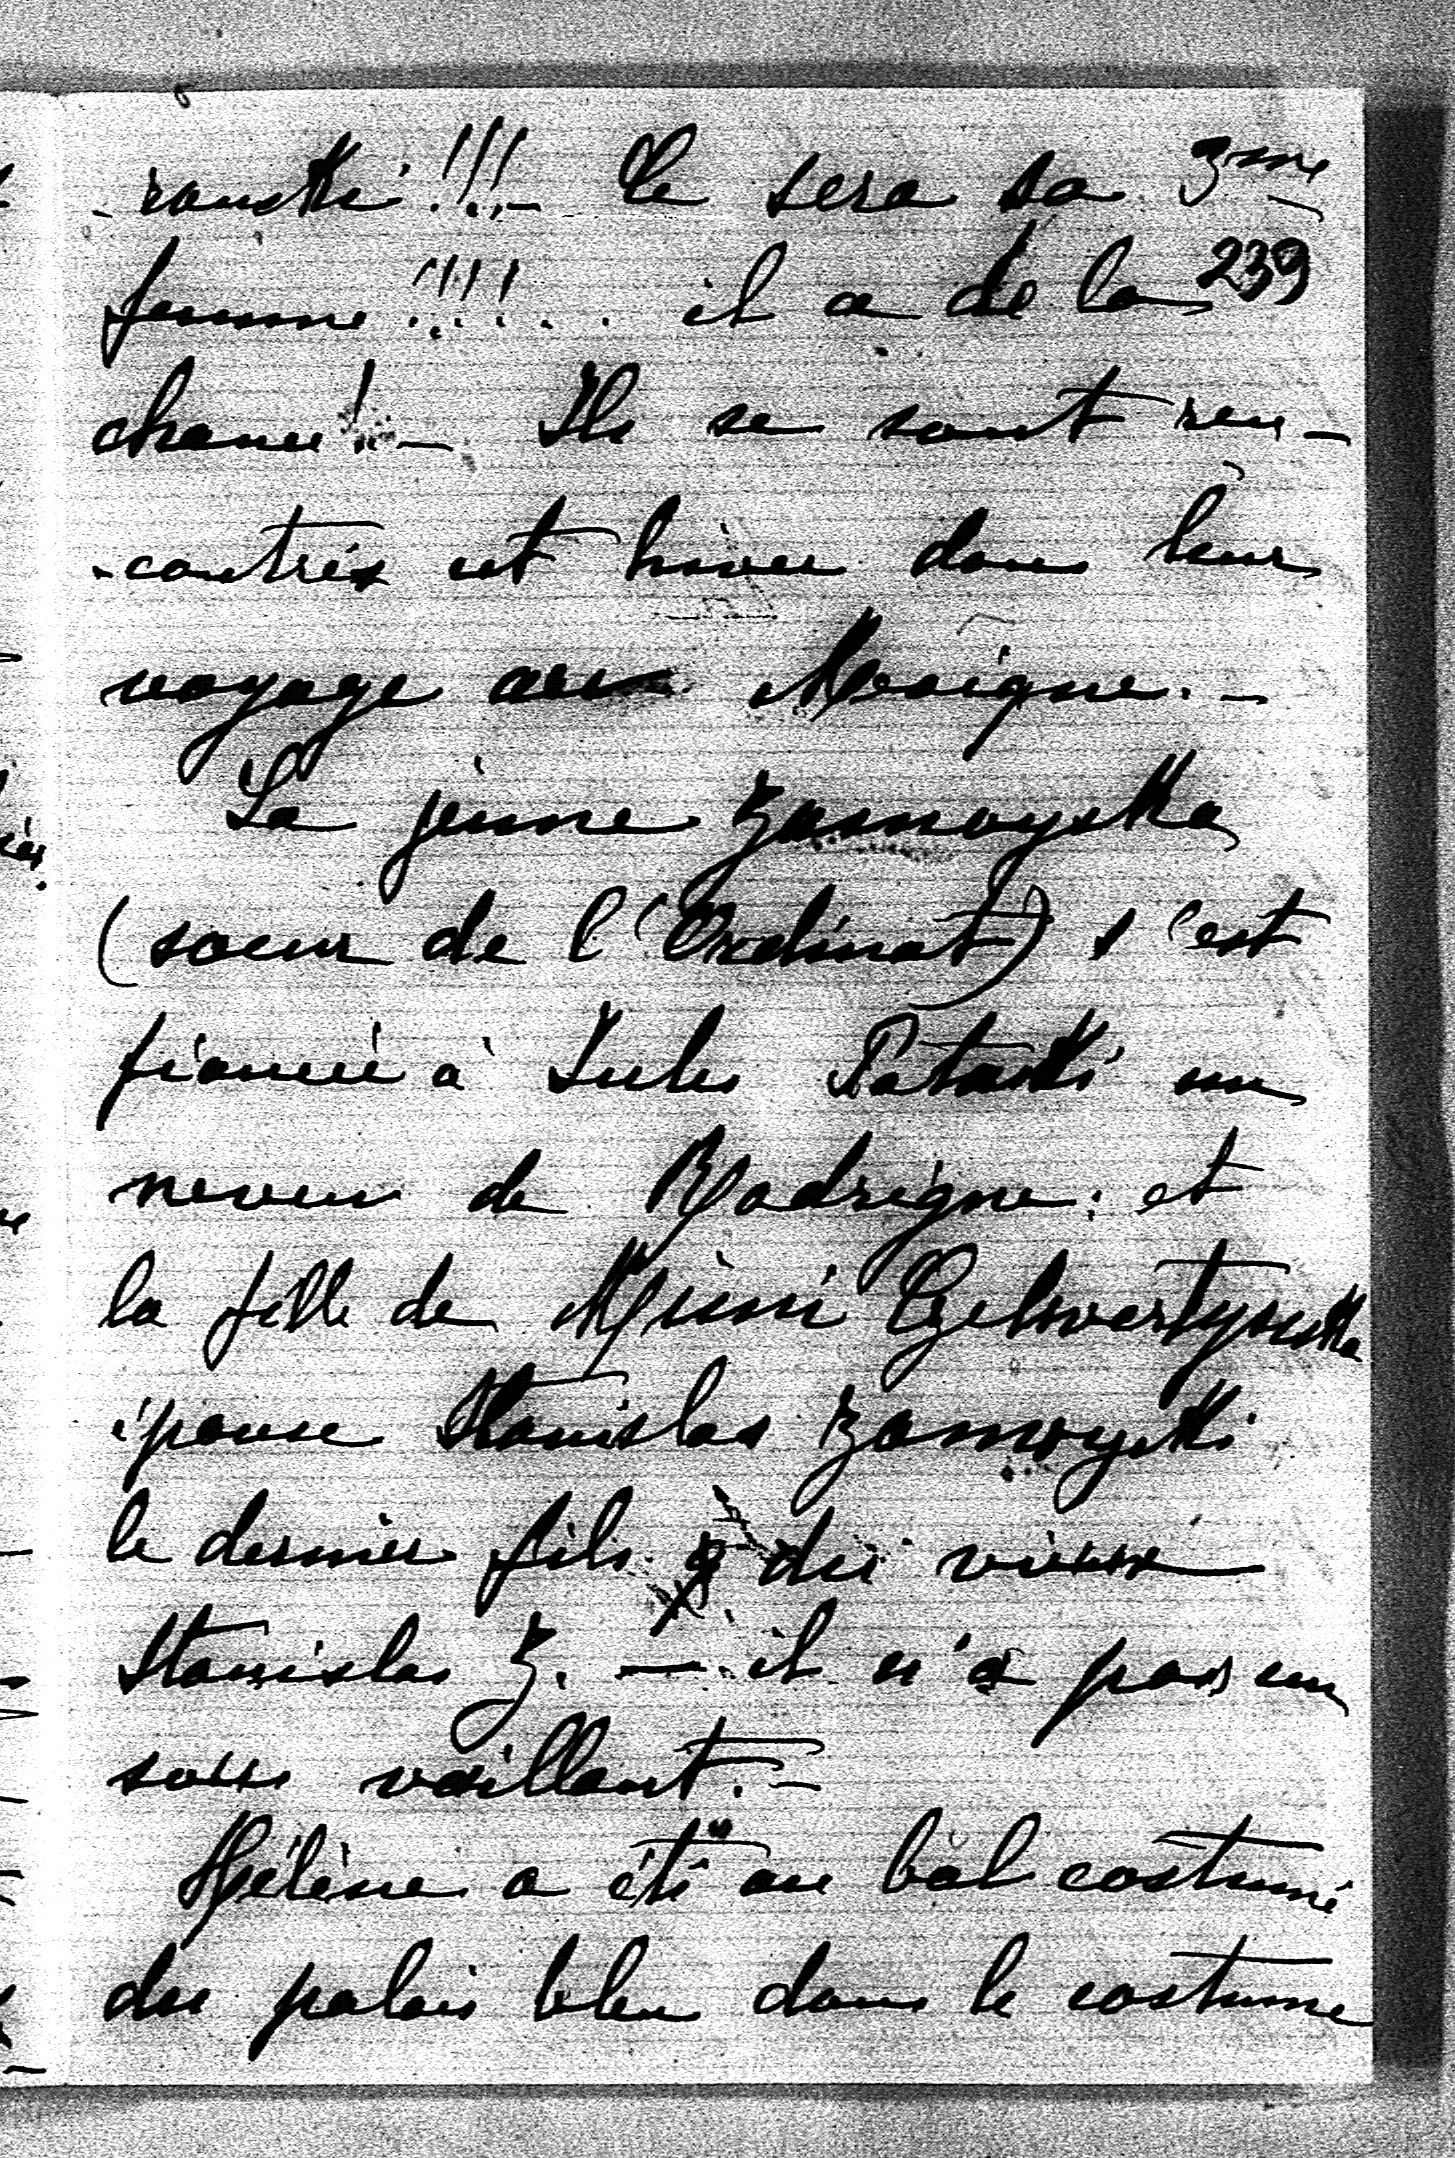 - rouski!!!- Ce sera sa 3me
239
femme!!!!.. il a de la
chance!- Ils se sont ren-
-contrés cet hiver dans leur
voyage au Mexique.-
La jeune Zamoyska
(soeur de l'Ordinat) s'est
fiancée à Jules Potocki un
neveu de Rodrigue. et
la fille de Mimi Czetwertynska
épouse Stanislas Zamoyski
le dernier fils du vieux
Stanislas Z. - il n'a pas un
sous vaillant.-
Hélène a été au bal costumé
du palais bleu dans le costume